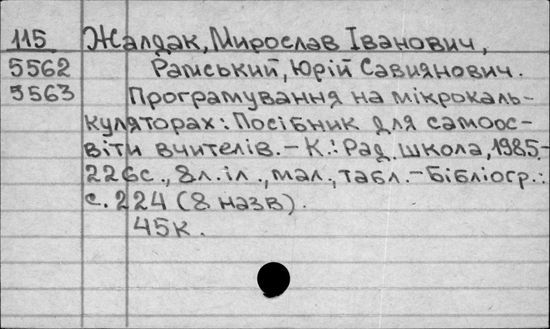 115 Жалдак, Мирослав Іванович,
5562 Рамський, Юрій Савиянович.
5563 Програмування на мікрокаль-
куляторах: Посібник для самоос-
віти вчителів. - К.: Рад. школа, 1985.-
226с., 8л.іл., мал., табл. - Бібліогр.:
с. 224 (8 назв).
45к.